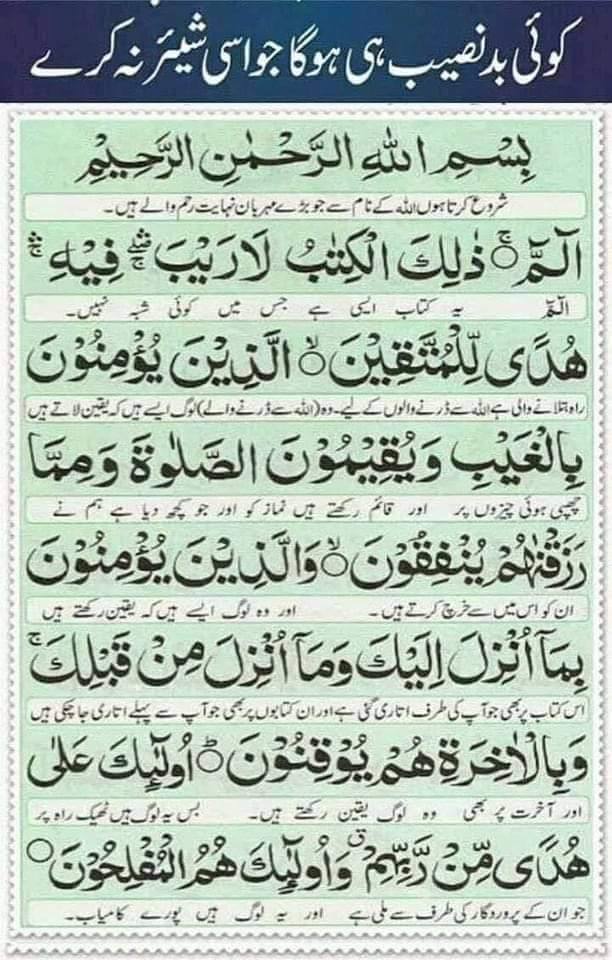 کوئی بد نصیب ہی ہوگا جو اسی شیئر نہ کرے
بِسْمِ اللهِ الرَّحْمٰنِ الرَّحِيْمِ
شروع کرتا ہوں اللہ کے نام سے جو بڑے مہربان نہایت رحم والے ہیں۔
الٓمّٓ ۚ ذٰلِكَ الْكِتٰبُ لَا رَيْبَ ۛ فِيْهِ ۛ
الٓمّٓ یہ کتاب ایسی ہے جس میں کوئی شبہ نہیں۔
هُدًى لِّلْمُتَّقِيْنَ ۙ الَّذِيْنَ يُؤْمِنُوْنَ
راہ بتلانے والی ہے اللہ سے ڈرنے والوں کے لیے۔ وہ (اللہ سے ڈرنے والے) لوگ ایسے ہیں کہ یقین لاتے ہیں
بِالْغَيْبِ وَيُقِيْمُوْنَ الصَّلٰوةَ وَمِمَّا
چھپی ہوئی چیزوں پر اور قائم رکھتے ہیں نماز کو اور جو کچھ دیا ہے ہم نے
رَزَقْنٰهُمْ يُنْفِقُوْنَ ۙ وَالَّذِيْنَ يُؤْمِنُوْنَ
ان کو اس میں سے خرچ کرتے ہیں۔ اور وہ لوگ ایسے ہیں کہ یقین رکھتے ہیں
بِمَآ اُنْزِلَ اِلَيْكَ وَمَآ اُنْزِلَ مِنْ قَبْلِكَ ۚ
اس کتاب پر بھی جو آپ کی طرف اتاری گئی ہے اور ان کتابوں پر بھی جو آپ سے پہلے اتاری جا چکی ہیں
وَبِالْاٰخِرَةِ هُمْ يُوْقِنُوْنَ ؕ اُولٰٓئِكَ عَلٰى
اور آخرت پر بھی وہ لوگ یقین رکھتے ہیں۔ بس یہ لوگ ہیں ٹھیک راہ پر
هُدًى مِّنْ رَّبِّهِمْ ۗ وَاُولٰٓئِكَ هُمُ الْمُفْلِحُوْنَ
جو ان کے پروردگار کی طرف سے ملی ہے اور یہ لوگ ہیں پورے کامیاب۔